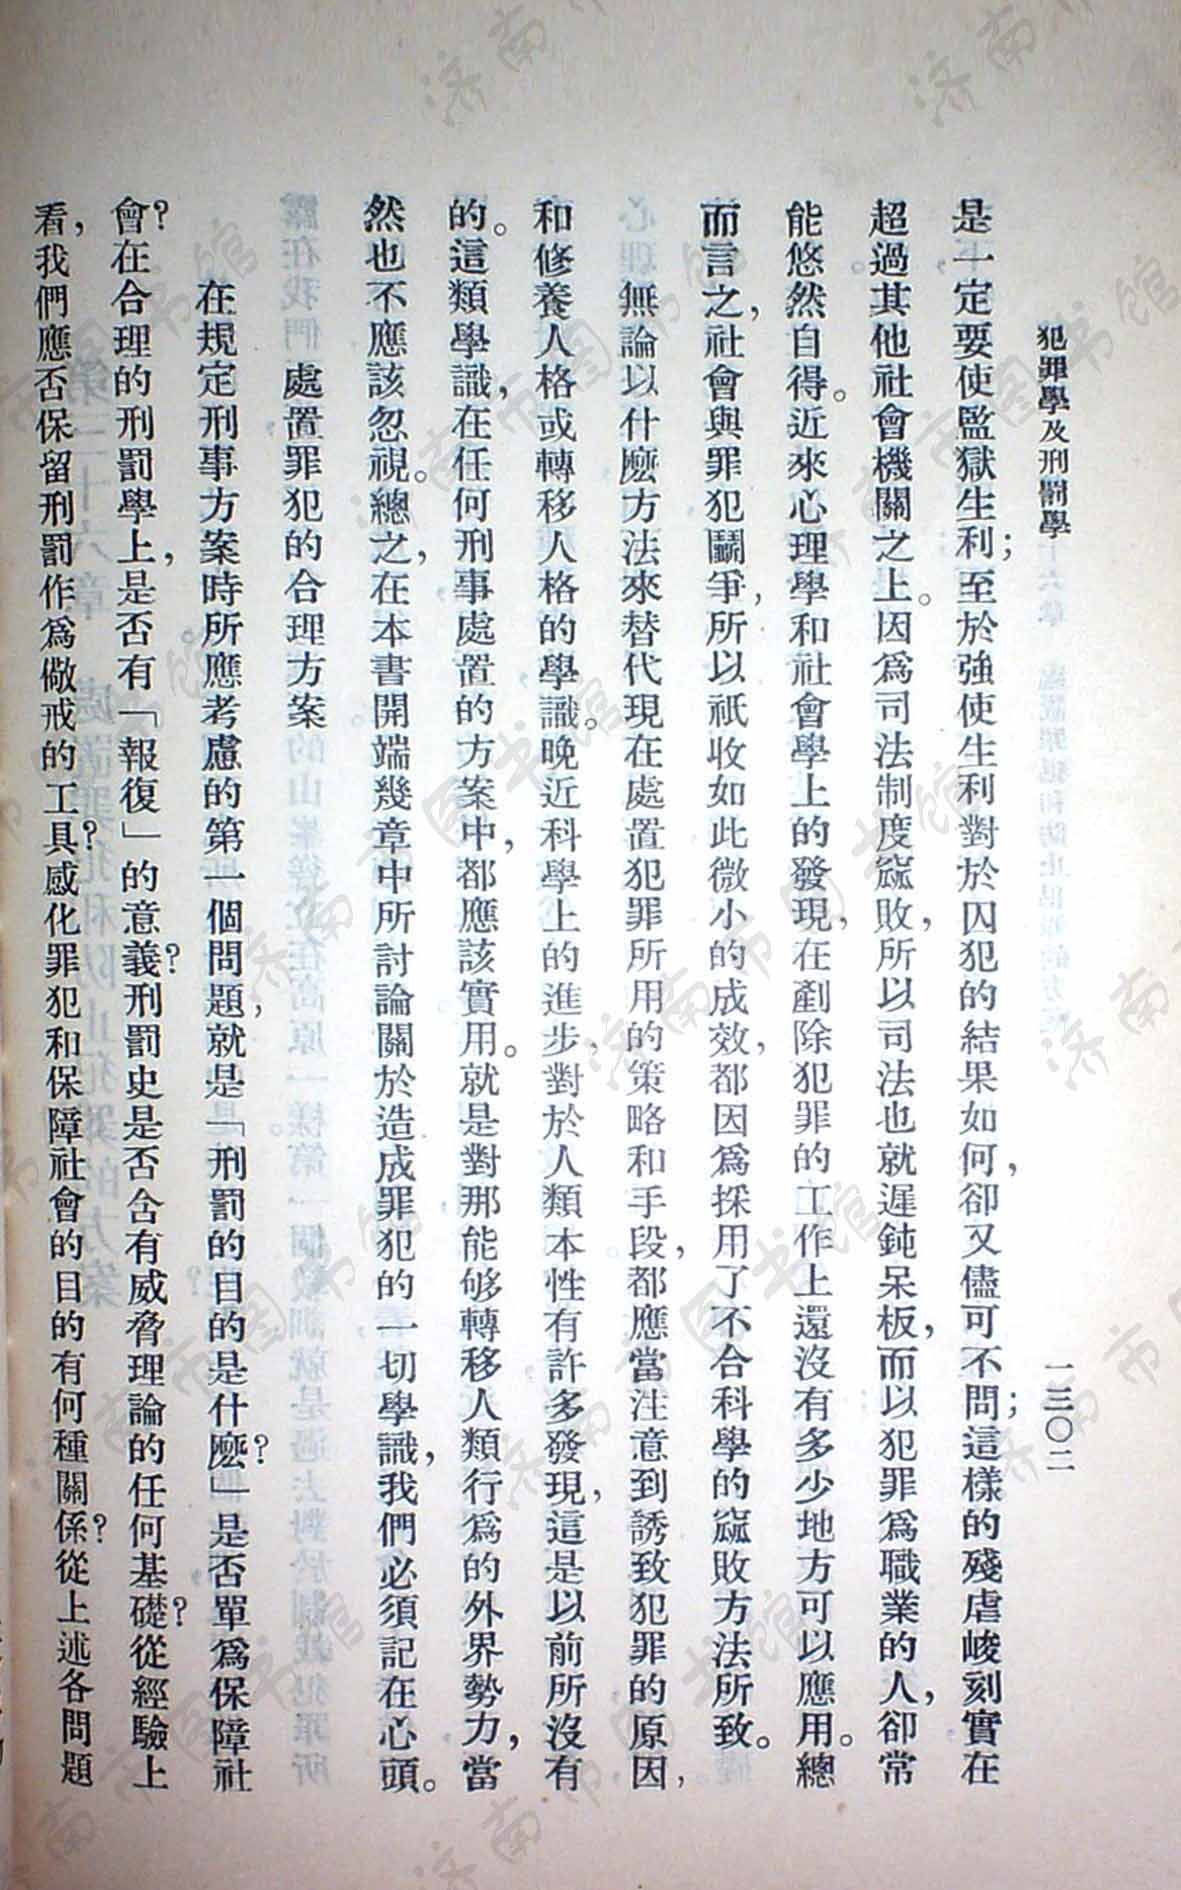 犯罪學及刑罰學
一三〇二
是一定要使監獄生利；至於強使生利對於囚犯的結果如何，卻又儘可不問；這樣的殘虐峻刻實在
超過其他社會機關之上。因爲司法制度窳敗，所以司法也就遲鈍呆板，而以犯罪爲職業的人，卻常
能悠然自得。近來心理學和社會學上的發現，在剷除犯罪的工作上還沒有多少地方可以應用。總
而言之，社會與罪犯鬭爭，所以祇收如此微小的成效，都因爲採用了不合科學的窳敗方法所致。
無論以什麽方法來替代現在處置犯罪所用的策略和手段，都應當注意到誘致犯罪的原因，
和修養人格或轉移人格的學識。晚近科學上的進步，對於人類本性有許多發現，這是以前所沒有
的。這類學識，在任何刑事處置的方案中，都應該實用。就是對那能够轉移人類行爲的外界勢力，當
然也不應該忽視。總之，在本書開端幾章中所討論關於造成罪犯的一切學識，我們必須記在心頭。
處置罪犯的合理方案
在規定刑事方案時所應考慮的第一個問題，就是「刑罰的目的是什麽？」是否單爲保障社
會？在合理的刑罰學上，是否有「報復」的意義？刑罰史是否含有威脅理論的任何基礎？從經驗上
看，我們應否保留刑罰作爲儆戒的工具？感化罪犯和保障社會的目的有何種關係？從上述各問題
济南市图书馆